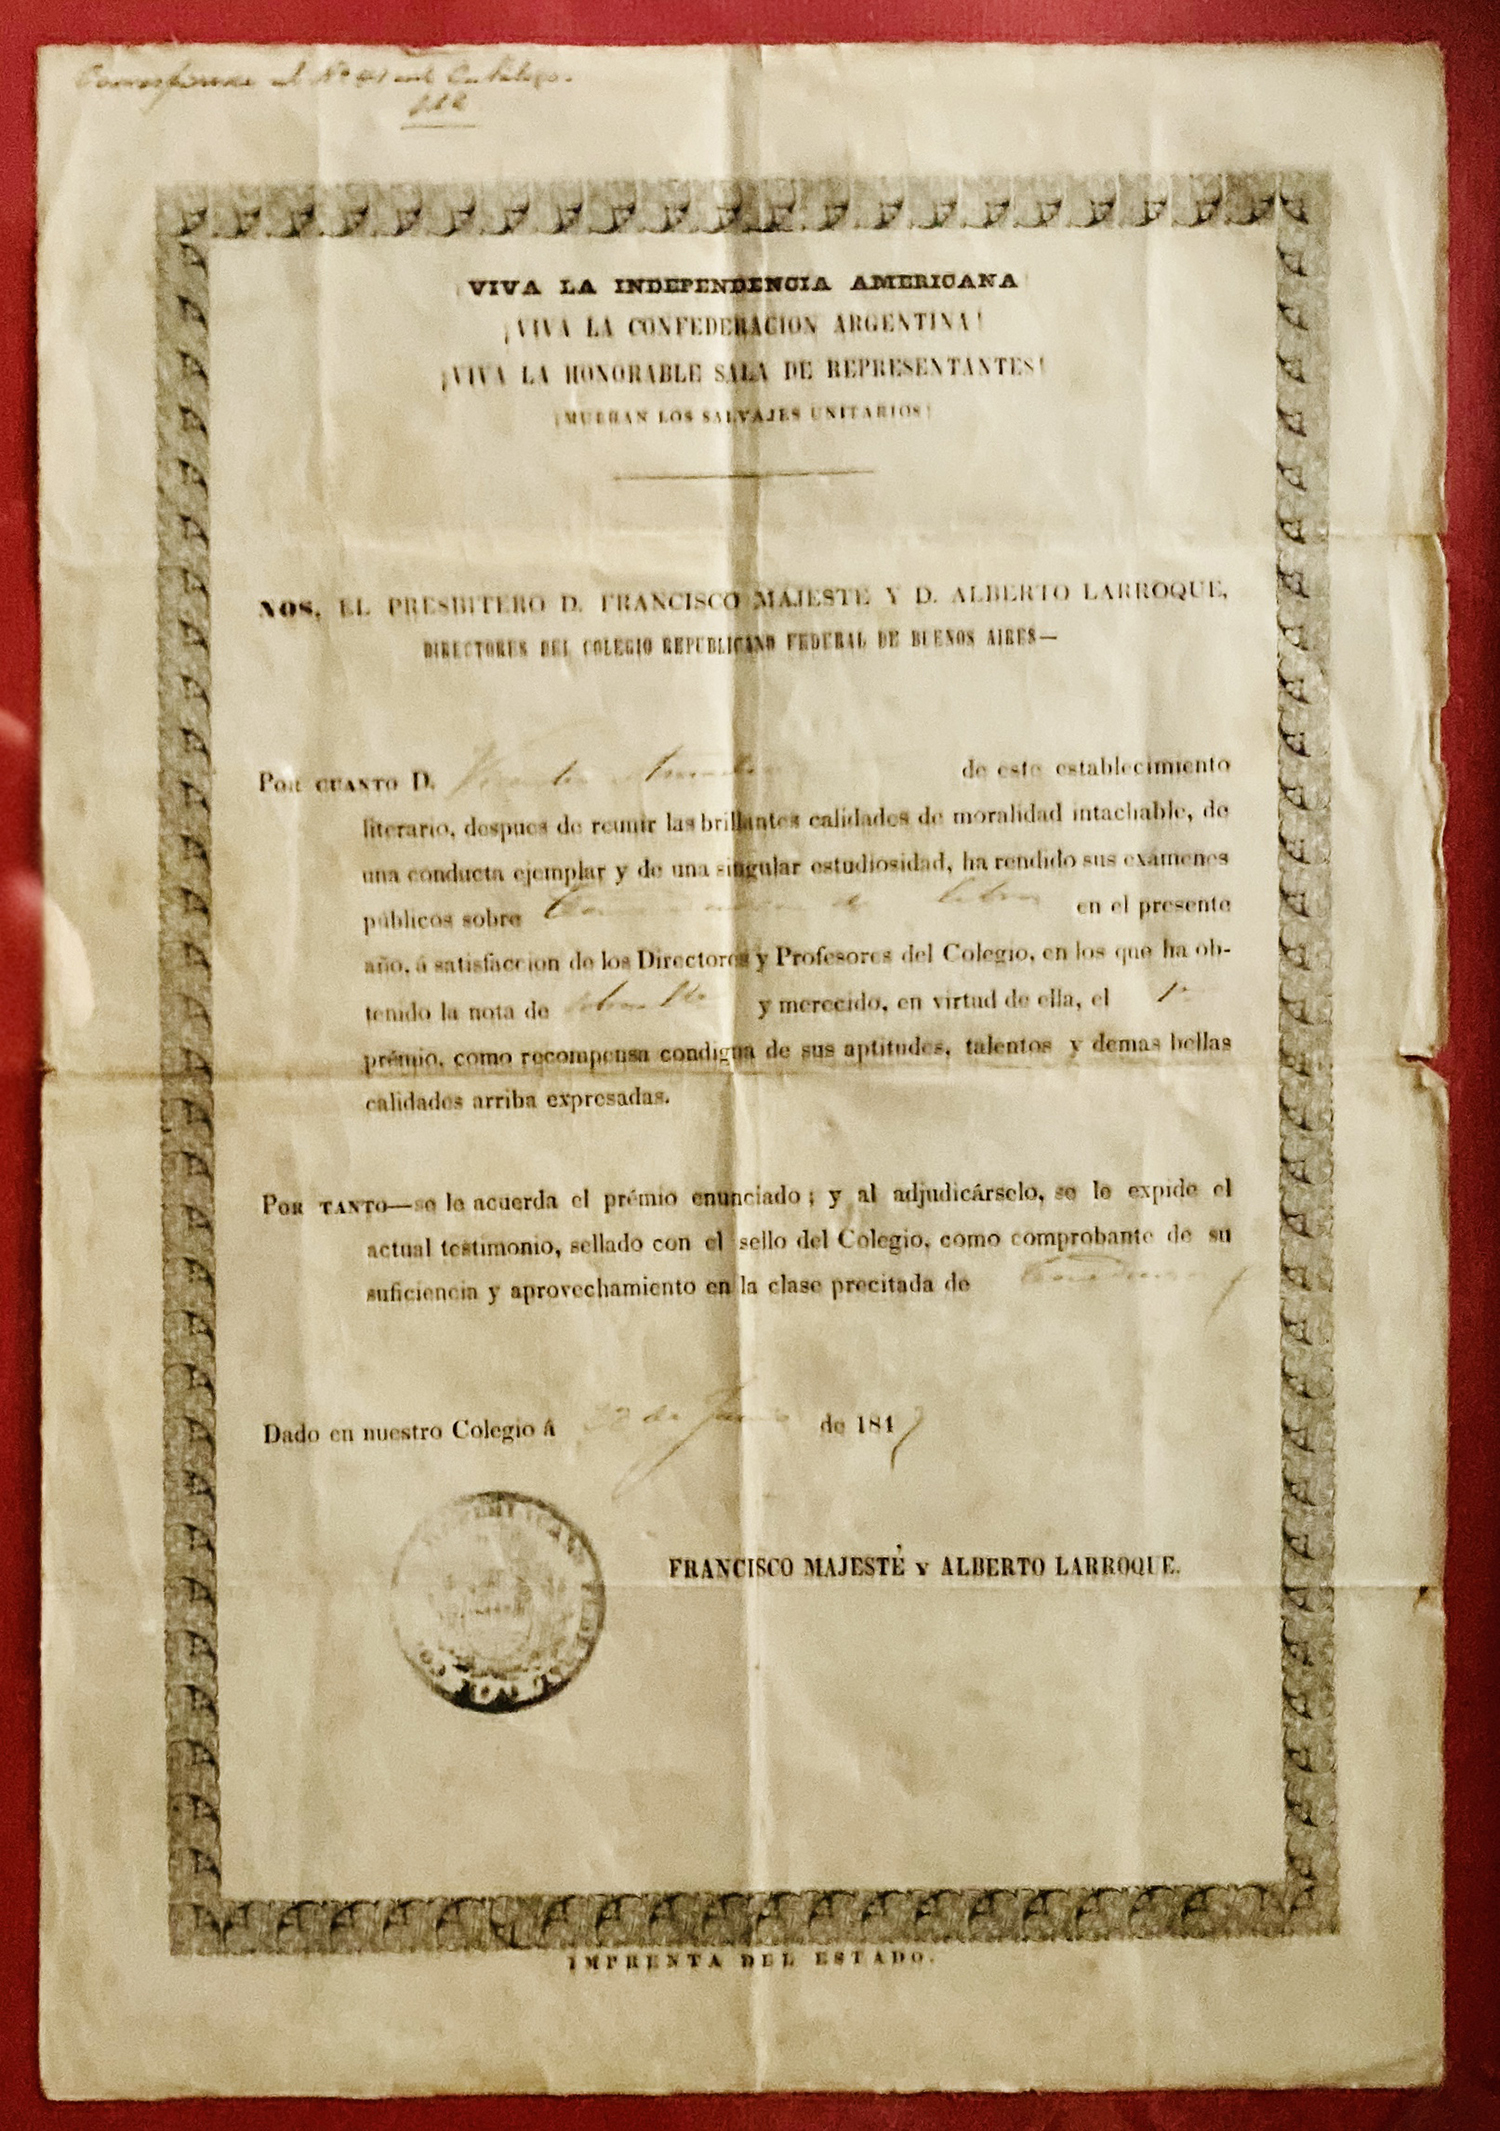 Corresponde al Nº 41 del Catálogo.
VIVA LA INDEPENDENCIA AMERICANA
¡VIVA LA CONFEDERACION ARGENTINA!
¡VIVA LA HONORABLE SALA DE REPRESENTANTES!
¡MUERAN LOS SALVAJES UNITARIOS!
NOS, EL PRESBITERO D. FRANCISCO MAJESTE Y D. ALBERTO LARROQUE,
DIRECTORES DEL COLEGIO REPUBLICANO FEDERAL DE BUENOS AIRES—
POR CUANTO D. de este establecimiento
literario, despues de reunir las brillantes calidades de moralidad intachable, de
una conducta ejemplar y de una singular estudiosidad, ha rendido sus exámenes
públicos sobre de en el presente
año, á satisfaccion de los Directores y Profesores del Colegio, en los que ha ob-
tenido la nota de y merecido, en virtud de ella, el 1º
prémio, como recompensa condigna de sus aptitudes, talentos y demas bellas
calidades arriba expresadas.
POR TANTO—se le acuerda el prémio enunciado; y al adjudicárselo, se le expide el
actual testimonio, sellado con el sello del Colegio, como comprobante de su
suficiencia y aprovechamiento en la clase precitada de
Dado en nuestro Colegio á de de 1847
FRANCISCO MAJESTÉ Y ALBERTO LARROQUE.
IMPRENTA DEL ESTADO.